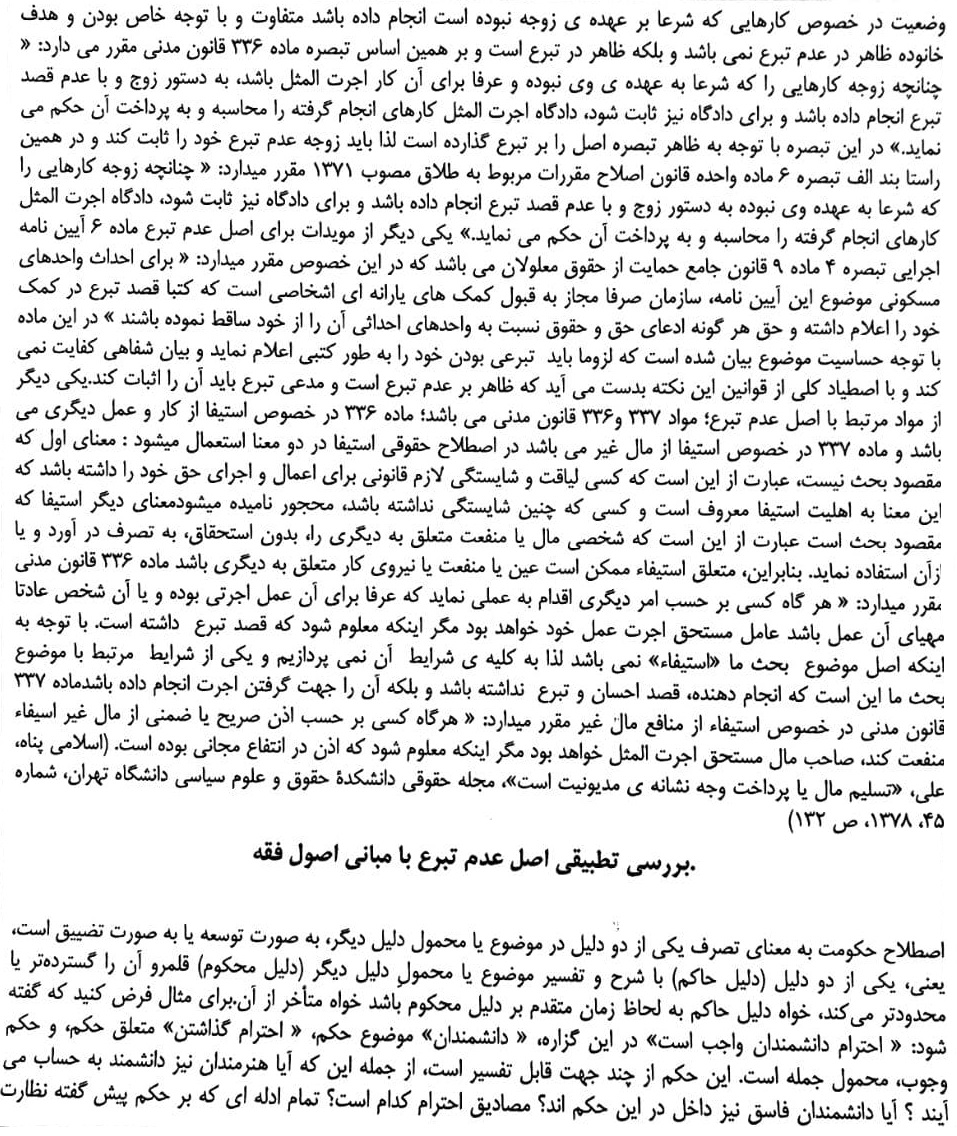 وضعیت در خصوص کارهایی که شرعا بر عهده ی زوجه نبوده است انجام داده باشد متفاوت و با توجه خاص بودن و هدف
خانوده ظاهر در عدم تبرع نمی باشد و بلکه ظاهر در تبرع است و بر همین اساس تبصره ماده ۳۳۶ قانون مدنی مقرر می دارد: «
چنانچه زوجه کارهایی را که شرعا به عهده ی وی نبوده و عرفا برای آن کار اجرت المثل باشد، به دستور زوج و با عدم قصد
تبرع انجام داده باشد و برای دادگاه نیز ثابت شود، دادگاه اجرت المثل کارهای انجام گرفته را محاسبه و به پرداخت آن حکم می
نماید.» در این تبصره با توجه به ظاهر تبصره اصل را بر تبرع گذارده است لذا باید زوجه عدم تبرع خود را ثابت کند و در همین
راستا بند الف تبصره ۶ ماده واحده قانون اصلاح مقررات مربوط به طلاق مصوب ۱۳۷۱ مقرر میدارد: « چنانچه زوجه کارهایی را
که شرعا به عهده وی نبوده به دستور زوج و با عدم قصد تبرع انجام داده باشد و برای دادگاه نیز ثابت شود، دادگاه اجرت المثل
کارهای انجام گرفته را محاسبه و به پرداخت آن حکم می نماید.» یکی دیگر از مویدات برای اصل عدم تبرع ماده ۶ آیین نامه
اجرایی تبصره ۴ ماده ۹ قانون جامع حمایت از حقوق معلولان می باشد که در این خصوص مقرر میدارد: « برای احداث واحدهای
مسکونی موضوع این آیین نامه، سازمان صرفا مجاز به قبول کمک های یارانه ای اشخاصی است که کتبا قصد تبرع در کمک
خود را اعلام داشته و حق هر گونه ادعای حق و حقوق نسبت به واحدهای احداثی آن را از خود ساقط نموده باشند » در این ماده
با توجه حساسیت موضوع بیان شده است که لزوما باید تبرعی بودن خود را به طور کتبی اعلام نماید و بیان شفاهی کفایت نمی
کند و با اصطیاد کلی از قوانین این نکته بدست می آید که ظاهر بر عدم تبرع است و مدعی تبرع باید آن را اثبات کند.یکی دیگر
از مواد مرتبط با اصل عدم تبرع؛ مواد ۳۳۷ و۳۳۶ قانون مدنی می باشد؛ ماده ۳۳۶ در خصوص استیفا از کار و عمل دیگری می
باشد و ماده ۳۳۷ در خصوص استیفا از مال غیر می باشد در اصطلاح حقوقی استیفا در دو معنا استعمال میشود : معنای اول که
مقصود بحث نیست، عبارت از این است که کسی لیاقت و شایستگی لازم قانونی برای اعمال و اجرای حق خود را داشته باشد که
این معنا به اهلیت استیفا معروف است و کسی که چنین شایستگی نداشته باشد، محجور نامیده میشودمعنای دیگر استیفا که
مقصود بحث است عبارت از این است که شخصی مال یا منفعت متعلق به دیگری را، بدون استحقاق، به تصرف در آورد و یا
ازآن استفاده نماید. بنابراین، متعلق استیفاء ممکن است عین یا منفعت یا نیروی کار متعلق به دیگری باشد ماده ۳۳۶ قانون مدنی
مقرر میدارد: « هر گاه کسی بر حسب امر دیگری اقدام به عملی نماید که عرفا برای آن عمل اجرتی بوده و یا آن شخص عادتا
مهیای آن عمل باشد عامل مستحق اجرت عمل خود خواهد بود مگر اینکه معلوم شود که قصد تبرع داشته است. با توجه به
اینکه اصل موضوع بحث ما «استیفاء» نمی باشد لذا به کلیه ی شرایط آن نمی پردازیم و یکی از شرایط مرتبط با موضوع
بحث ما این است که انجام دهنده، قصد احسان و تبرع نداشته باشد و بلکه آن را جهت گرفتن اجرت انجام داده باشدماده ۳۳۷
قانون مدنی در خصوص استیفاء از منافع مال غیر مقرر میدارد: « هرگاه کسی بر حسب اذن صریح یا ضمنی از مال غیر اسیفاء
منفعت کند، صاحب مال مستحق اجرت المثل خواهد بود مگر اینکه معلوم شود که اذن در انتفاع مجانی بوده است. (اسلامی پناه،
علی، «تسلیم مال یا پرداخت وجه نشانه ی مدیونیت است»، مجله حقوقی دانشکدۀ حقوق و علوم سیاسی دانشگاه تهران، شماره
۴۵، ۱۳۷۸، ص ۱۳۲)
.بررسی تطبیقی اصل عدم تبرع با مبانی اصول فقه
اصطلاح حکومت به معنای تصرف یکی از دو دلیل در موضوع یا محمول دلیل دیگر، به صورت توسعه یا به صورت تضییق است،
یعنی، یکی از دو دلیل (دلیل حاکم) با شرح و تفسیر موضوع یا محمولِ دلیل دیگر (دلیل محکوم) قلمرو آن را گسترده‌تر یا
محدودتر می‌کند، خواه دلیل حاکم به لحاظ زمان متقدم بر دلیل محکوم باشد خواه متأخر از آن.برای مثال فرض کنید که گفته
شود: « احترام دانشمندان واجب است» در این گزاره، « دانشمندان» موضوع حکم، « احترام گذاشتن» متعلق حکم، و حکم
وجوب، محمول جمله است. این حکم از چند جهت قابل تفسیر است، از جمله این که آیا هنرمندان نیز دانشمند به حساب می
آیند ؟ آیا دانشمندان فاسق نیز داخل در این حکم اند؟ مصادیق احترام کدام است؟ تمام ادله ای که بر حکم پیش گفته نظارت